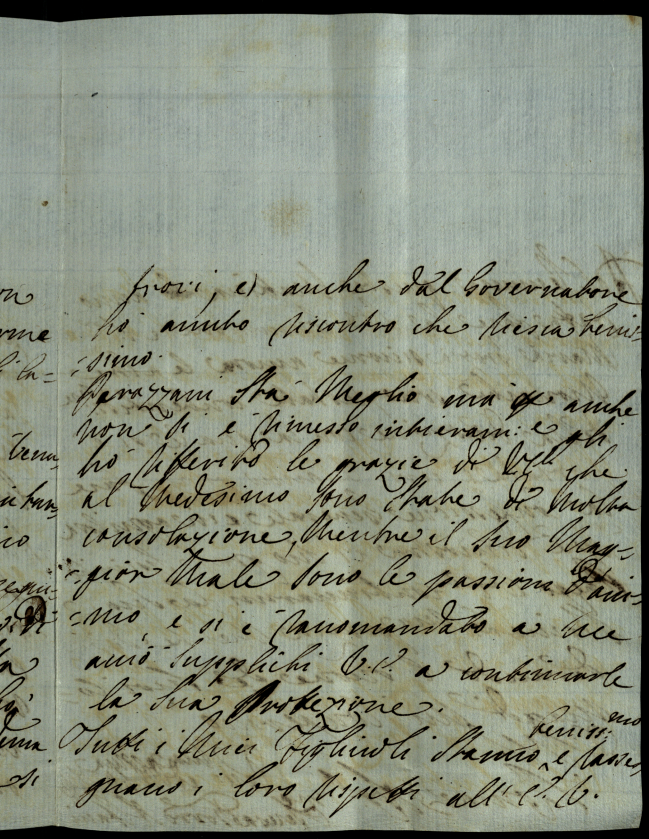 trovi, e anche dal Governatore
hò auuto riscontro che riesca benis=
=simo.
Pavazzani stà Meglio mà anche
non si è rimesso intieram:e e gli
hò riferito le grazie di V.E. che
al Medesimo sono state di molta
consolazione, mentre il suo Mag=
=gior Male sono le passioni d'ani=
=mo, e si è racomandato a me
acciò supplichi V.E. a continuarle
la sua Protezione.
Tutti i Miei Figliuoli stanno beniss:mo e rasse=
gnano i loro rispetti all' E. V.